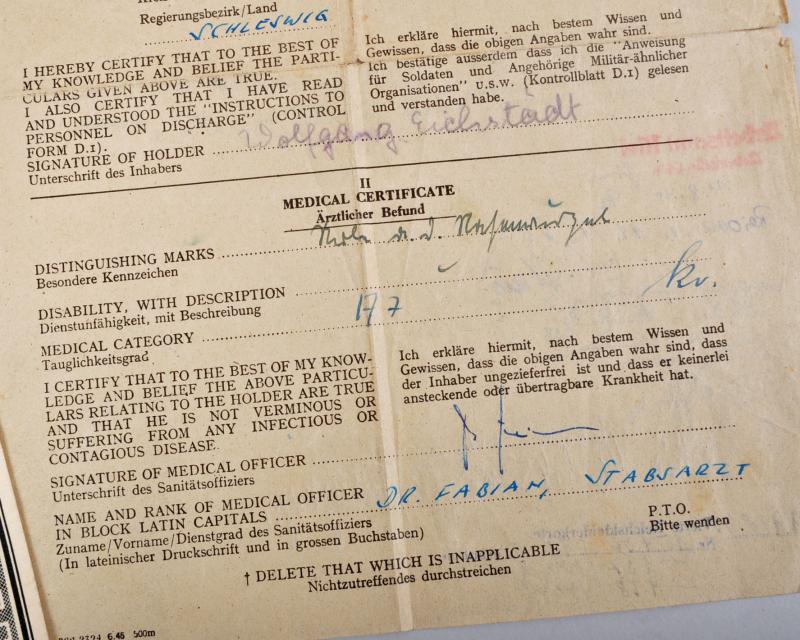 Regierungsbezirk/Land
SCHLESWIG
I HEREBY CERTIFY THAT TO THE BEST OF
MY KNOWLEDGE AND BELIEF THE PARTI-
CULARS GIVEN ABOVE ARE TRUE.
I ALSO CERTIFY THAT I HAVE READ
AND UNDERSTOOD THE "INSTRUCTIONS TO
PERSONNEL ON DISCHARGE" (CONTROL
FORM D.1).
Ich erkläre hiermit, nach bestem Wissen und
Gewissen, dass die obigen Angaben wahr sind.
Ich bestätige ausserdem dass ich die "Anweisung
für Soldaten und Angehörige Militär-ähnlicher
Organisationen" u.s.w. (Kontrollblatt D.1) gelesen
und verstanden habe.
SIGNATURE OF HOLDER Wolfgang Eichstädt
Unterschrift des Inhabers
II
MEDICAL CERTIFICATE
Ärztlicher Befund
DISTINGUISHING MARKS Narbe a. d. Nasenwurzel
Besondere Kennzeichen
DISABILITY, WITH DESCRIPTION
Dienstunfähigkeit, mit Beschreibung
MEDICAL CATEGORY A 7 kv.
Tauglichkeitsgrad
I CERTIFY THAT TO THE BEST OF MY KNOW-
LEDGE AND BELIEF THE ABOVE PARTICU-
LARS RELATING TO THE HOLDER ARE TRUE
AND THAT HE IS NOT VERMINOUS OR
SUFFERING FROM ANY INFECTIOUS OR
CONTAGIOUS DISEASE.
Ich erkläre hiermit, nach bestem Wissen und
Gewissen, dass die obigen Angaben wahr sind, dass
der Inhaber ungezieferfrei ist und dass er keinerlei
ansteckende oder übertragbare Krankheit hat.
SIGNATURE OF MEDICAL OFFICER
Unterschrift des Sanitätsoffiziers
NAME AND RANK OF MEDICAL OFFICER
IN BLOCK LATIN CAPITALS DR. FABIAN, STABSARZT
Zuname/Vorname/Dienstgrad des Sanitätsoffiziers
(In lateinischer Druckschrift und in grossen Buchstaben)
P.T.O.
Bitte wenden
† DELETE THAT WHICH IS INAPPLICABLE
Nichtzutreffendes durchstreichen
6.45 500m